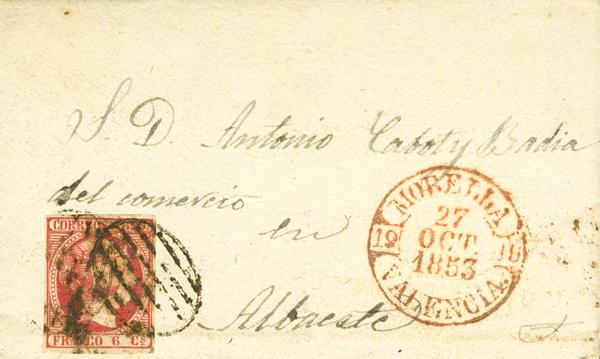 S. D. Antonio Cabot y Badia
del comercio
en
Albacete
MORELLA
27
OCT
1853
VALENCIA
FRANCO 6 Cs